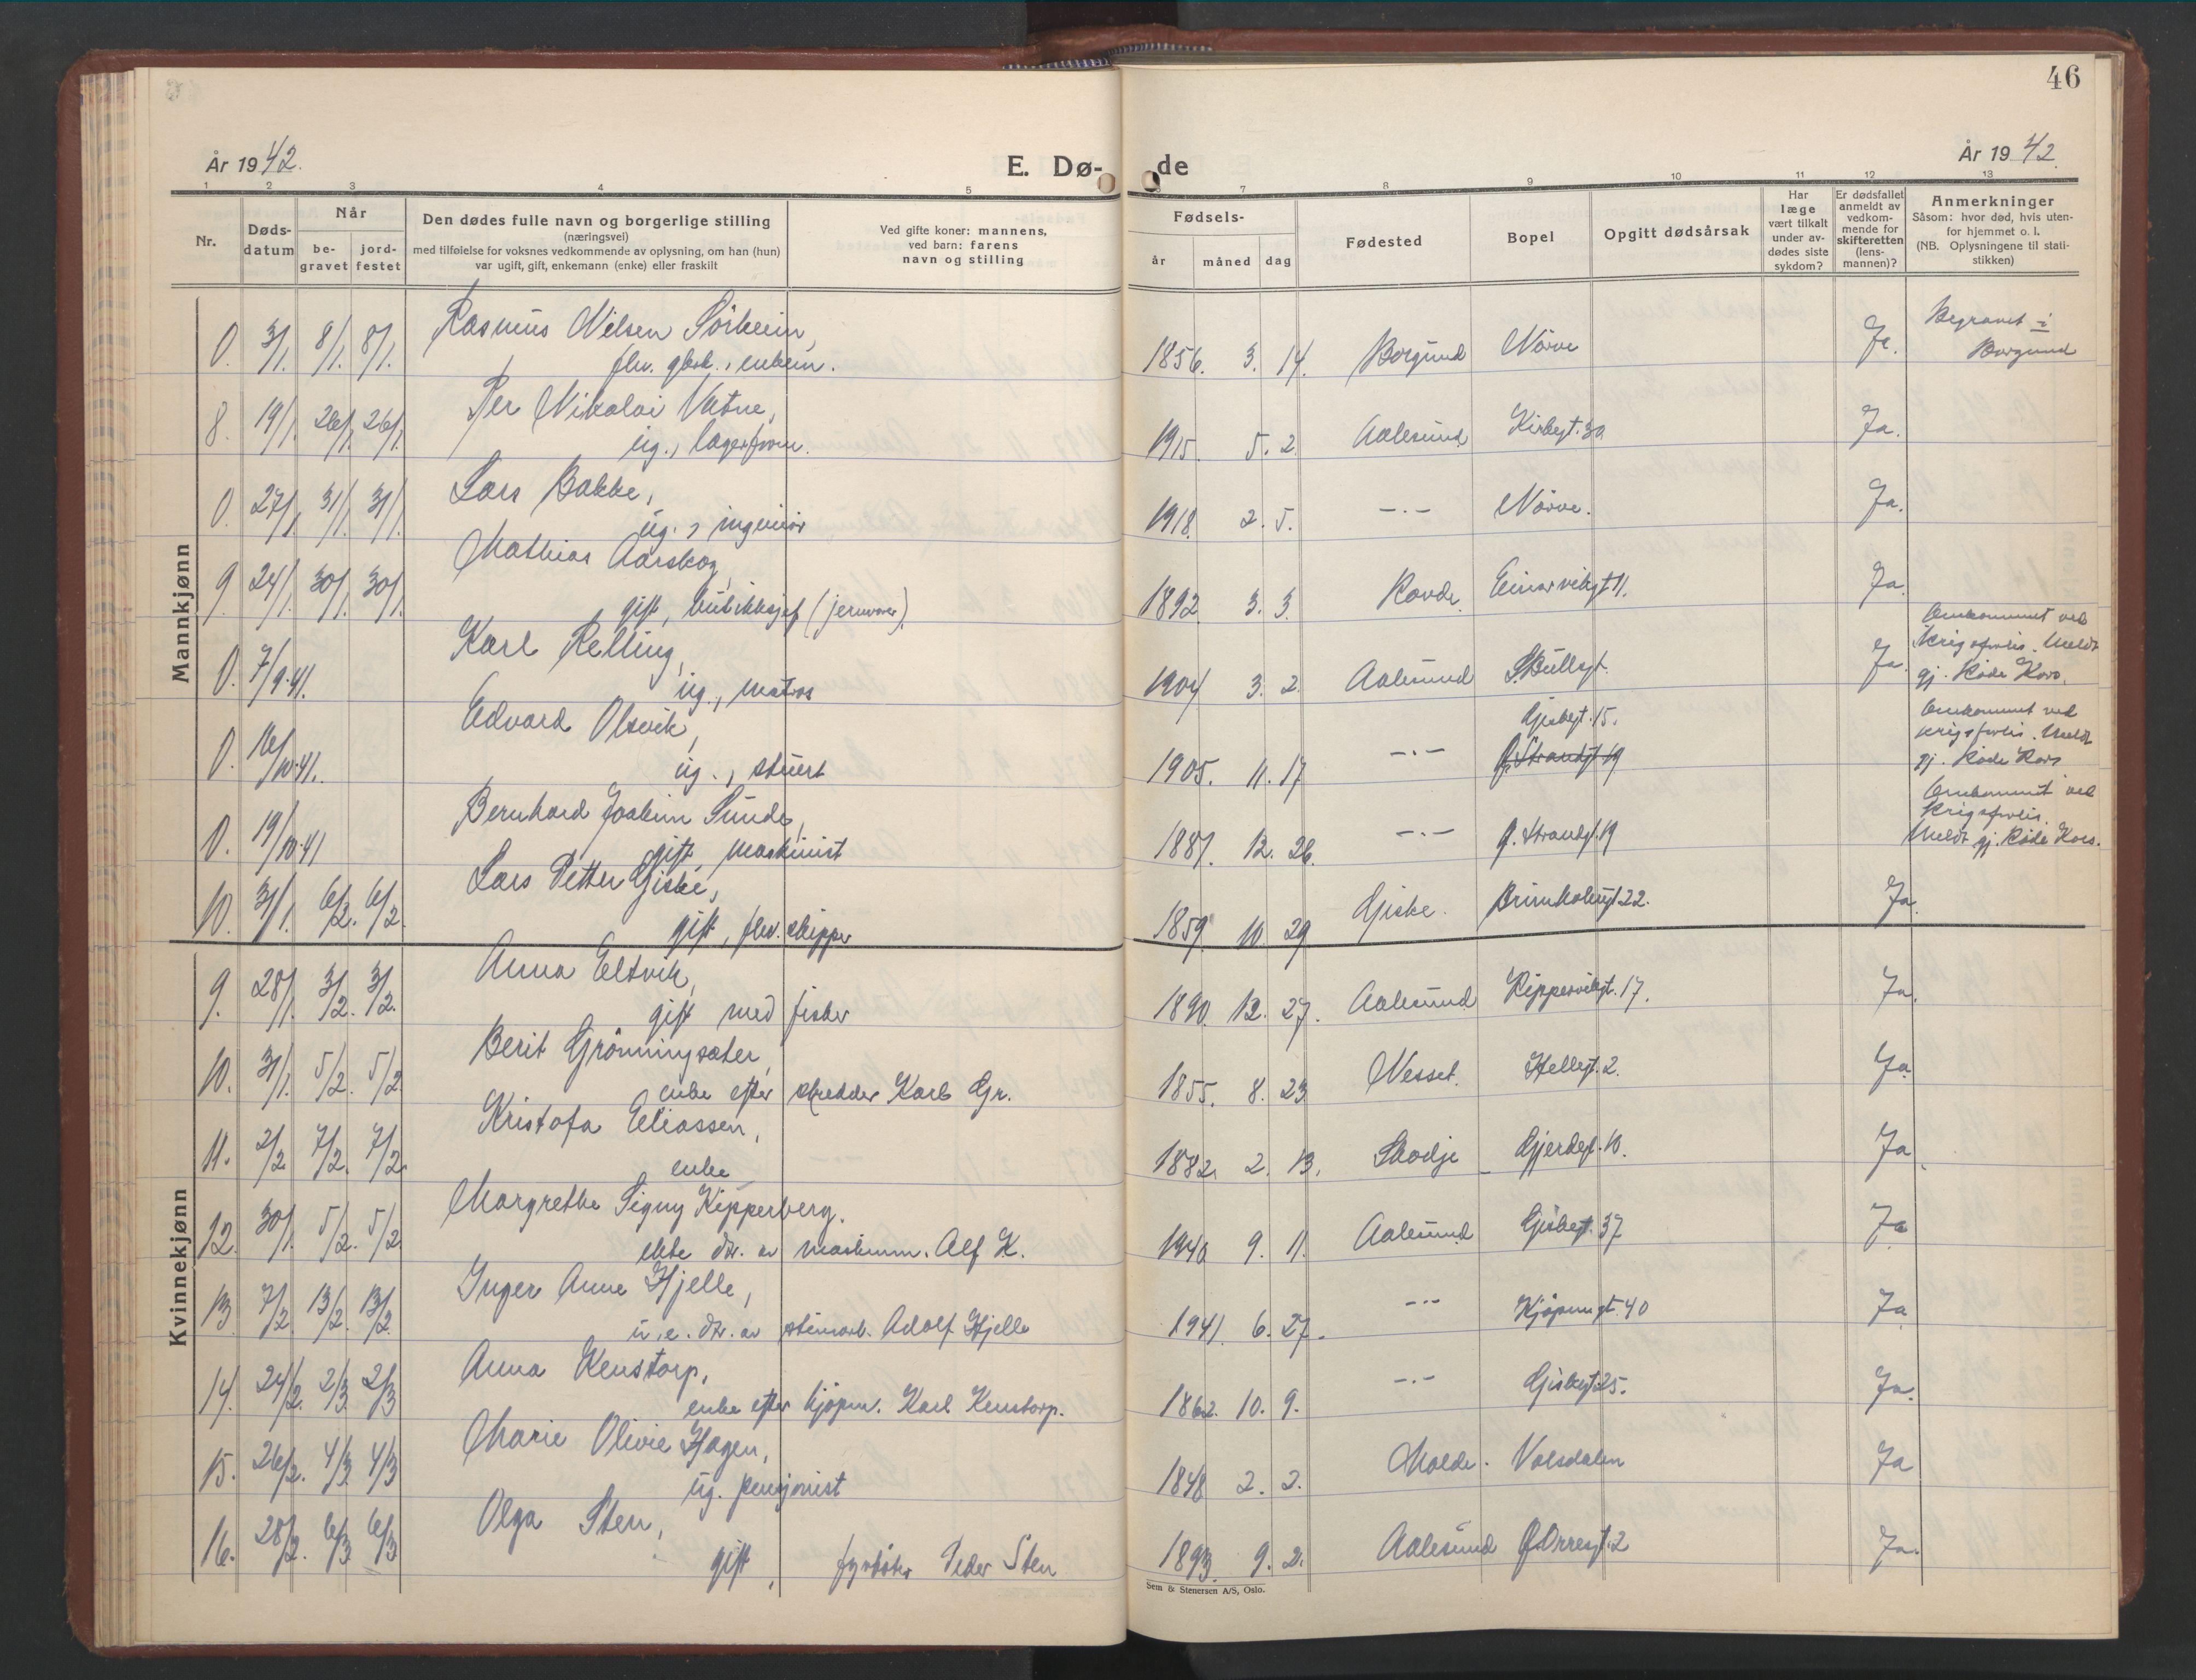 46
År 1942.
E. Dø-
de
År 1942.
1 2 3 4 5 6 7 8 9 10 11 12 13
Nr.
Døds-
datum
Når
be-
gravet
jord-
festet
Den dødes fulle navn og borgerlige stilling
(næringsvei)
med tilføielse for voksnes vedkommende av oplysning, om han (hun)
var ugift, gift, enkemann (enke) eller fraskilt
Ved gifte koner: mannens,
ved barn: farens
navn og stilling
Fødsels-
år måned dag
Fødested
Bopel
Opgitt dødsårsak
Har
læge
vært tilkalt
under av-
dødes siste
sykdom?
Er dødsfallet
anmeldt av
vedkom-
mende for
skifteretten
(lens-
mannen)?
Anmerkninger
Såsom: hvor død, hvis uten-
for hjemmet o. l.
(NB. Oplysningene til stati-
stikken)
Mannkjønn
0. 3/1. 8/1. 8/1. Rasmus Nilsen Sörheim,
flv. gbrk., enkem. 1856. 3. 14. Borgund Nörve Ja. Begravet i
Borgund
8. 19/1. 26/1. 26/1. Per Nikolai Vatne,
ug., lagerform. 1915. 5. 2. Aalesund Kirkegt. 30 Ja.
0. 27/1. 31/1. 31/1. Lars Bakke,
ug., ingeniör 1918. 2. 5. -.- Nörve. Ja.
9. 24/1. 30/1. 30/1. Mathias Aarskog,
gift, butikksjef (jernvarer). 1892 3. 3. Rovde. Einarvikgt 11. Ja.
0. 7/9.41. Karl Relling,
ug., matros 1904 3. 2. Aalesund S. Bullsgt. Ja. Omkommet ved
krigsforlis. Meldt
gj. Röde Kors.
0. 16/10.41. Edvard Olsvik,
ug., stuert 1905. 11. 17 -.- Giskegt. 15.
Ø. Strandgt 19 Omkommet ved
krigsforlis. Meldt
gj. Röde Kors
0. 19/10.41 Bernhard Joakim Sunde,
gift, maskinist 1887. 12. 26. -.- Ø. Strandgt. 19 Omkommet ved
krigsforlis.
Meldt gj. Röde Kors.
10. 31/1. 6/2. 6/2. Lars Petter Giske,
gift, flv. skipper 1859. 10. 29 Giske. Brunholmgt 22. Ja.
Kvinnekjønn
9. 28/1. 3/2. 3/2. Anna Eltvik,
gift med fisker 1890. 12. 27. Aalesund Kippervikgt. 17. Ja.
10. 31/1. 5/2. 5/2. Berit Grönningsæter,
enke efter skredder Karl Gr. 1855. 8. 23 Nesset. Hellegt. 2. Ja
11. 2/2 7/2. 7/2. Kristofa Eliassen,
enke 1882. 2. 13. Skodje Gjerdegt. 10. Ja
12. 30/1. 5/2. 5/2 Margrethe Signy Kipperberg.
ekte dtr. av maskinm. Alf K. 1940 9. 11. Aalesund Giskegt. 37 Ja
13 7/2. 13/2. 13/2. Inger Anne Hjelle,
u.e. dtr. av stenarb. Adolf Hjelle 1941. 6. 27. -.- Kjöpmgt. 40 Ja
14. 24/2. 2/3. 2/3 Anna Kenstorp,
enke efter kjöpm. Karl Kenstorp. 1862. 10. 9. -.- Giskegt. 25. Ja.
15. 26/2. 4/3. 4/3 Marie Olivie Hagen,
ug. pensjonist 1848 2. 2. Molde. Volsdalen Ja
16. 28/2. 6/3. 6/3 Olga Sten,
gift, fyrböter Peder Sten 1893. 9. 2. Aalesund Ø Orresgt. 2 Ja.
Sem & Stenersen A/S, Oslo.